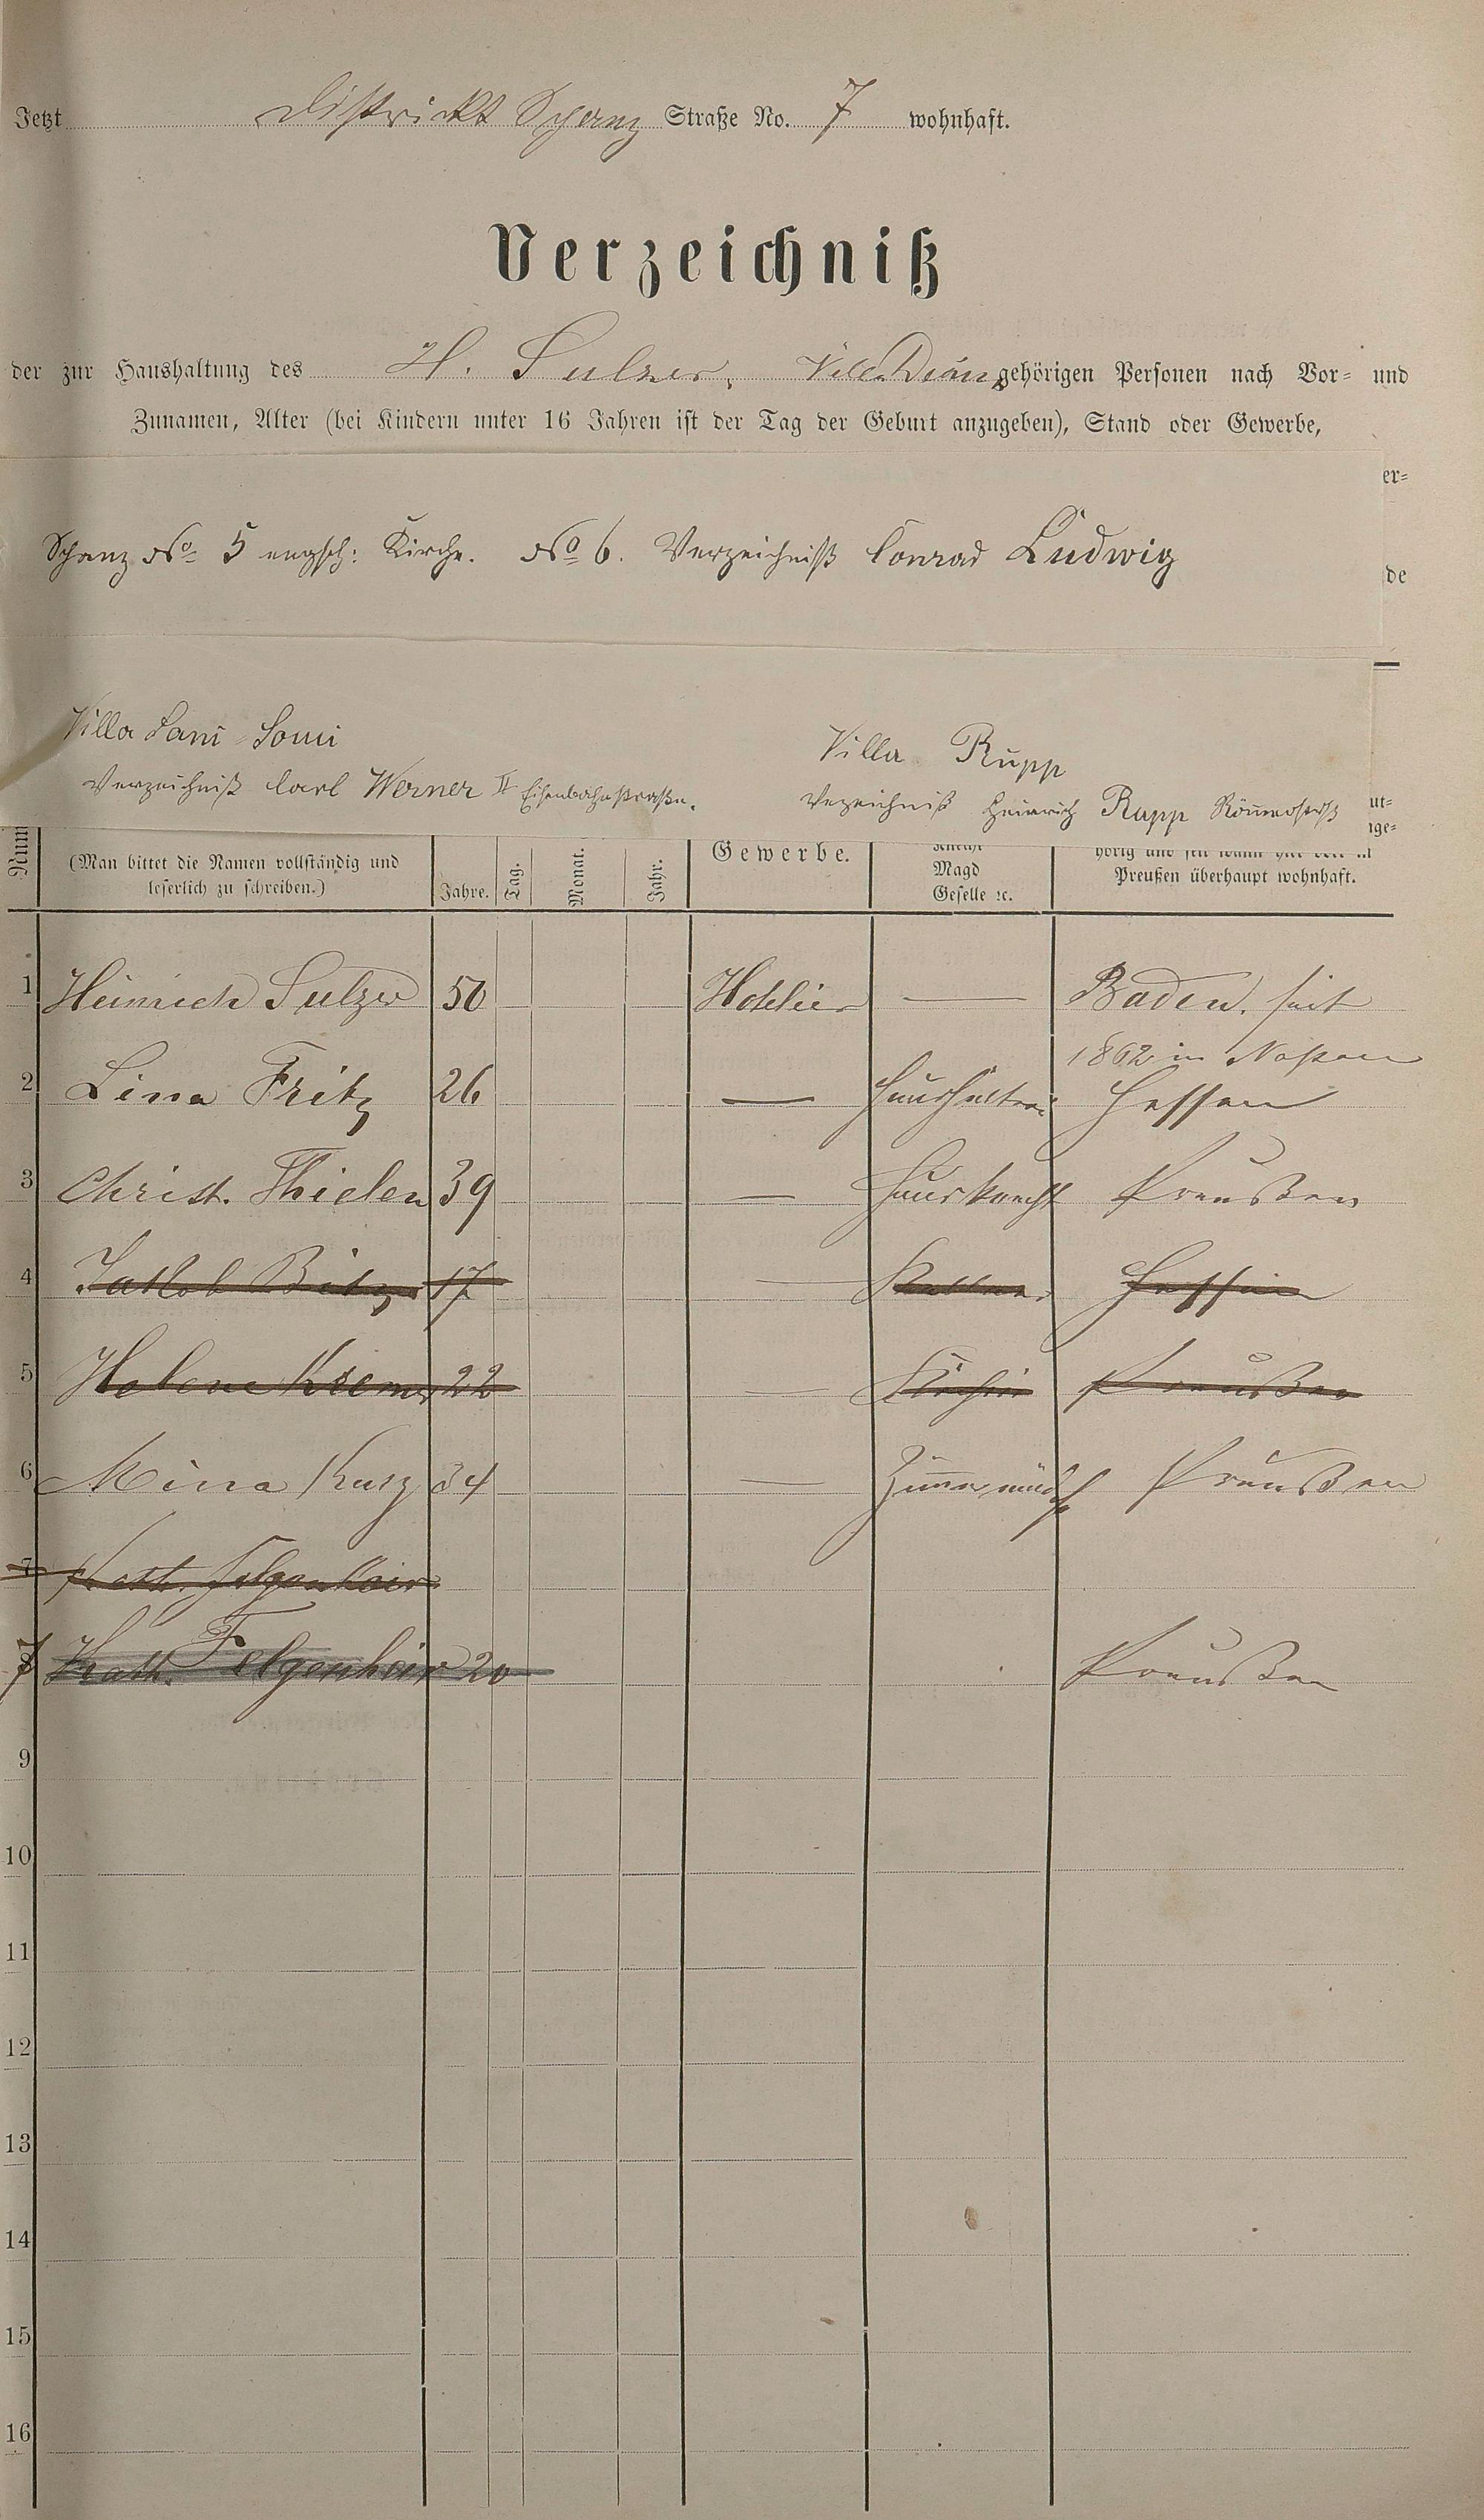 Jetzt Districkt Schanz Straße No. 7 wohnhaft.
Verzeichniß
der zur Haushaltung des H. Sulzer, Villa gehörigen Personen nach Vor- und
Zunamen, Alter (bei Kindern unter 16 Jahren ist der Tag der Geburt anzugeben), Stand oder Gewerbe,
er-
Schanz No 5 englsch: Kirche. No 6. Verzeichniß Conrad Ludwig
de
Villa Sans-Souci
Verzeichniß Carl Werner II Eisenbahnstraße.
Villa Rupp
Verzeichniß Heinrich Rupp Römerstrß
ut-
ige-
Num
(Man bittet die Namen vollständig und
leserlich zu schreiben.)
Jahre. Tag. Monat. Jahr.
Gewerbe.
Knecht
Magd
Geselle ꝛc.
hörig und seit wann
Preußen überhaupt wohnhaft.
1 Heinrich Sulzer 50 Hotelier — Baden. seit
1862 in Nassau
2 Lina Fritz 26 — Haushälterin Hessen
3 Christ. Thielen 39 — Hausknecht Preußen
4 Jakob 17 — Kellner Hessen
5 Helene Kremer 22 — Köchin Preußen
6 Mina Kurz 34 — Zimmermädch Preußen
7 Kath. Felgenheir
7 8 Kath. Felgenheir 20 Preußen
9
10
11
12
13
14
15
16